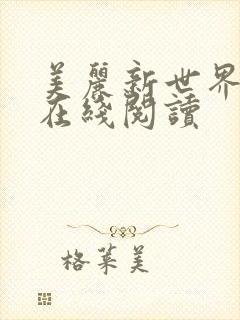 美麗新世界
在綫閱讀
格莱美